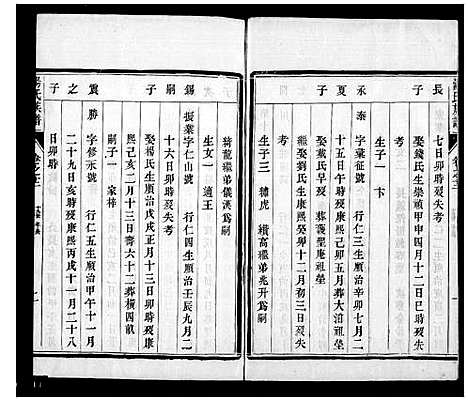 長
七日卯時歿失考
娶錢氏生崇禎甲申四月十二日巳時歿失
考
生子一 卞
承
泰 字葉征號 行仁三生順治辛卯七月二
十九日卯時歿康熙己卯五月葬大泊祖塋
夏
娶戴氏早歿 葬護聖庵祖塋
子
繼娶劉氏生康熙癸卯十月初三日歿失
考
生子二 繡虎 續高繼弟兆開爲嗣
綺龍繼弟儀漢爲嗣
生女一 適王
錫
振業字仁山號 行仁四生順治壬辰九月二
十六日卯時歿失考
嗣
娶楊氏生順治戊戌正月十三日卯時歿康
子
熙己亥二月十三日壽六十二葬橫四㘰
嗣子一 家梓
震
勝 字修永號 行仁五生順治甲午十一月
之
二十九日亥時歿康熙丙戌十一月二十八
子
日卯時